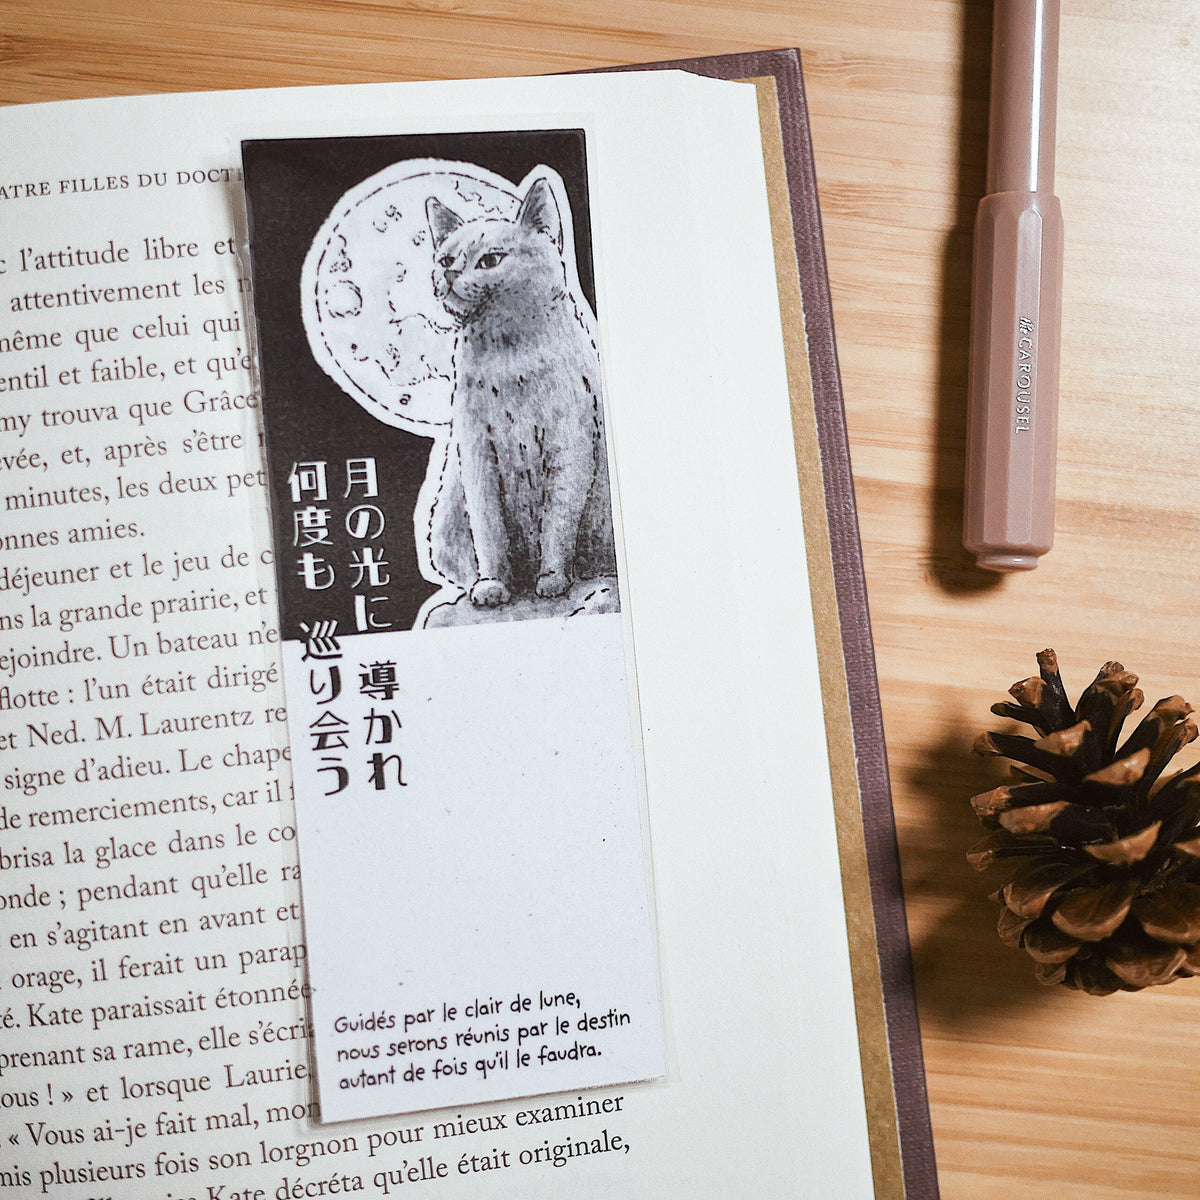 ATRE FILLES DU DOCT
l'attitude libre et
attentivement les
même que celui qui
entil et faible, et qu'e
my trouva que Grâce
vée, et, après s'être
minutes, les deux pet
onnes amies.
déjeuner et le jeu de c
ns la grande prairie, et
ejoindre. Un bateau n'e
flotte : l'un était dirigé
et Ned. M. Laurentz re
signe d'adieu. Le chape
de remerciements, car il f
brisa la glace dans le co
onde ; pendant qu'elle ra
en s'agitant en avant et
orage, il ferait un parap
té. Kate paraissait étonnée
prenant sa rame, elle s'écri
ous ! » et lorsque Laurie,
« Vous ai-je fait mal, mon
mis plusieurs fois son lorgnon pour mieux examiner
Kate décréta qu'elle était originale,
月の光に 導かれ
何度も 巡り会う
Guidés par le clair de lune,
nous serons réunis par le destin
autant de fois qu'il le faudra.
CAROUSEL